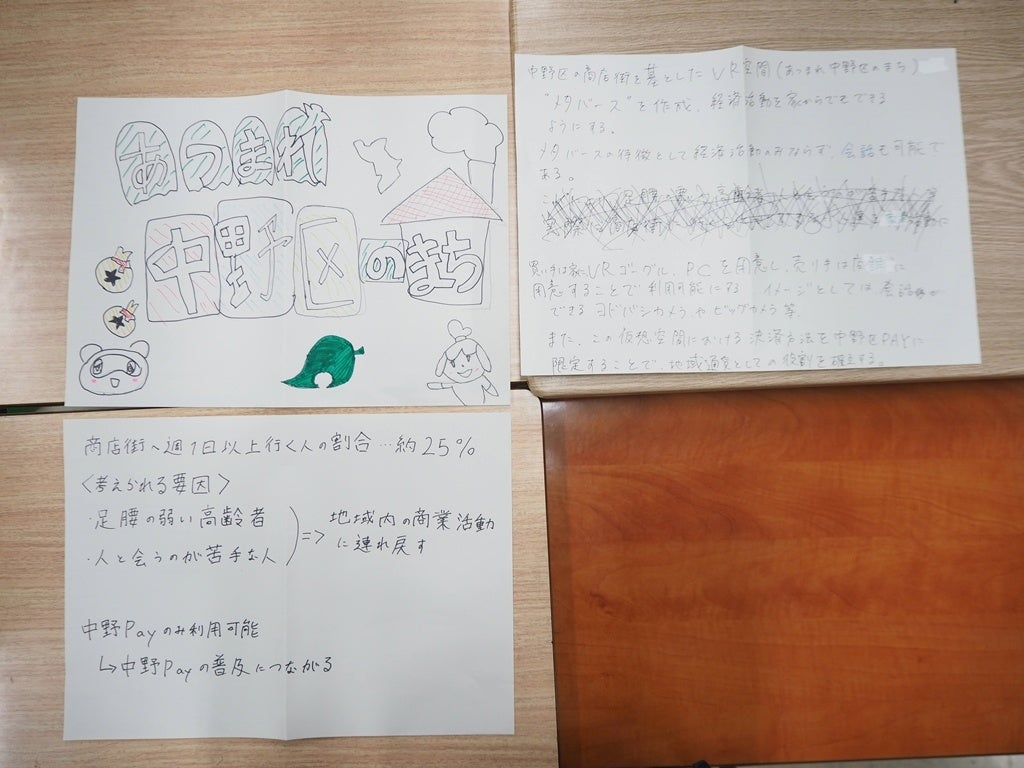 あつまれ
中野区のまち
中野区の商店街を基としたVR空間(あつまれ中野区のまち)
"メタバース"を作成、経済活動を家からでもできる
ようにする。
メタバースの特徴として経済活動のみならず、会話も可能で
ある。
買い手は家にVRゴーグル、PCを用意し、売り手は店舗に
用意することで利用可能にする イメージとしては会話が
できるヨドバシカメラやビッグカメラ等
また、この仮想空間における決済方法を中野区PAYに
限定することで、地域通貨としての役割を確立する。
商店街へ週1日以上行く人の割合…約25%
<考えられる要因>
・足腰の弱い高齢者
・人と会うのが苦手な人
=> 地域内の商業活動
に連れ戻す
中野Payのみ利用可能
↳中野Payの普及につながる